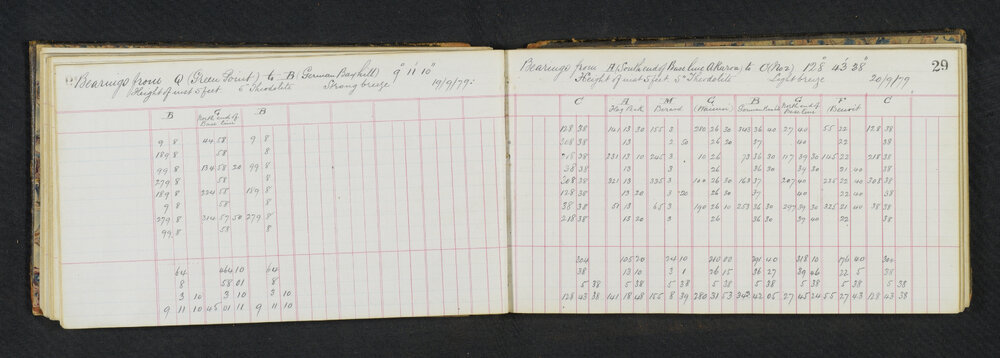 Bearings from Q (Green Point) to B (German Bay hill) 9° 11' 10"
Height of inst 5 feet 5" Theodolite Strong breeze 19/9/79
B G B
North end of
Base line
9 8 44 58 9 8
189 8 58 8
99 8 134 58 20 99 8
279 8 58 8
189 8 224 58 189 8
9 8 58 8
279 8 314 57 50 279 8
99 8 58 8
64 464 10 64
8 58 01 8
3 10 3 10 3 10
9 11 10 45 01 11 9 11 10
Bearings from A (South end of Base line Akaroa) to C (Pier) 128° 43' 38"
Height of inst 5 feet 5" Theodolite Light breeze 20/9/79
29
C A M G B G F C
Flag Peak Berard North end of Benoit
Base line
128 38 141 13 30 155 3 280 26 30 343 36 40 27 40 55 22 128 38
308 38 13 2 50 26 20 37 40 22 38
218 38 231 13 10 245 3 10 26 73 36 30 117 39 30 145 22 218 38
38 38 13 3 26 36 30 39 30 21 40 38
308 38 321 13 335 3 100 26 30 163 37 207 40 235 22 40 308 38
128 38 13 20 3 20 26 30 37 40 22 40 38
38 38 51 13 65 3 190 26 10 253 36 30 297 39 30 325 21 40 38 38
218 38 13 20 3 26 36 30 39 40 22 38
304 105 70 24 10 210 00 291 40 318 10 176 40 304
38 13 10 3 1 26 15 36 27 39 46 22 5 38
5 38 5 38 5 38 5 38 5 38 5 38 5 38
128 43 38 141 18 48 155 8 39 280 31 53 343 42 05 27 45 24 55 27 43 128 43 38